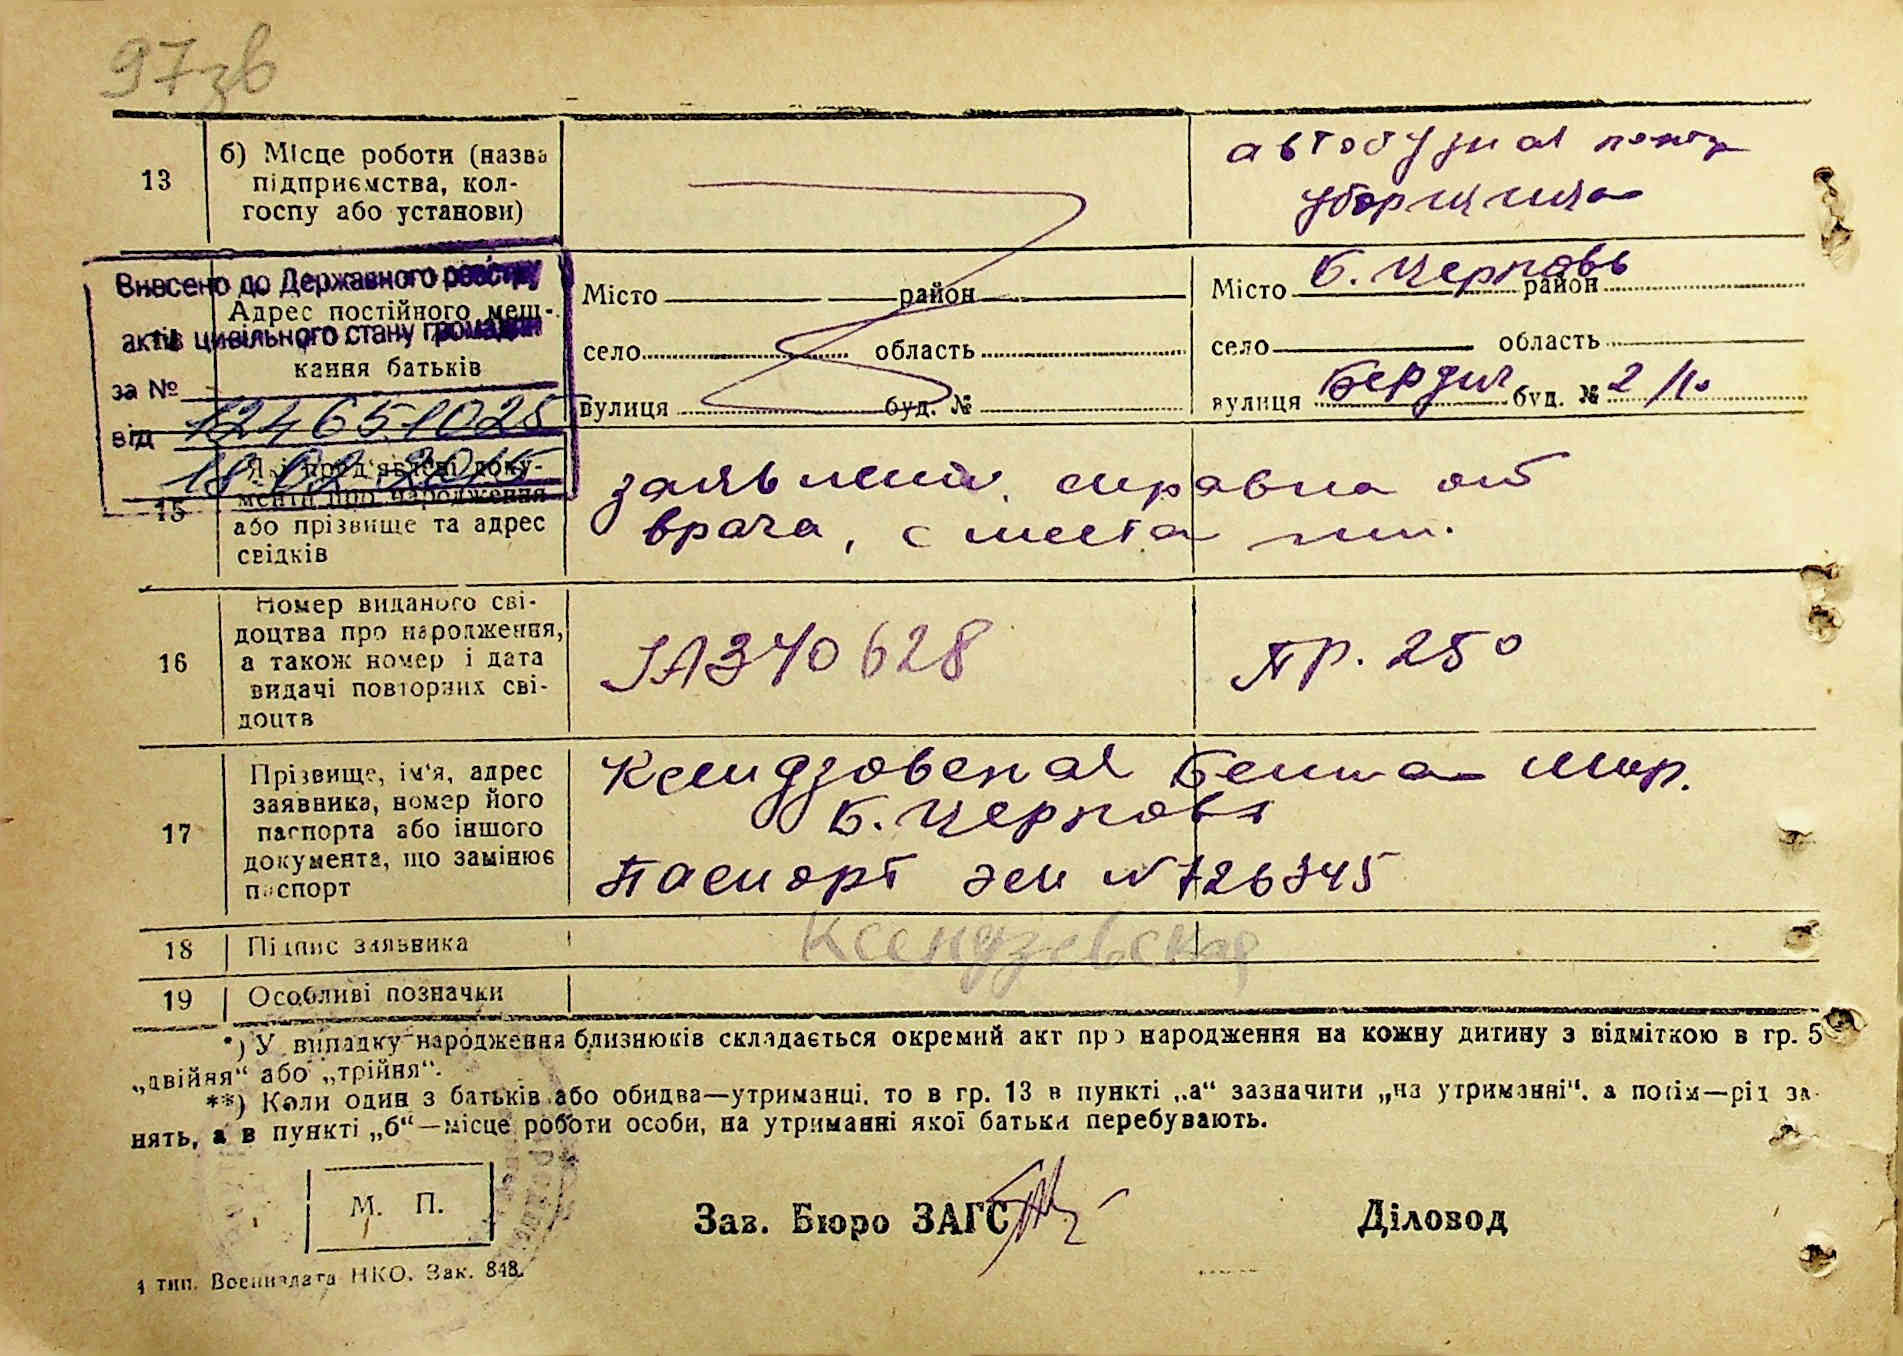 97зв
13
б) Місце роботи (назва
підприємства, кол-
госпу або установи)
уборщица
Внесено до Державного реєстру
актів цивільного стану громадян
за №
124651025
від
18.02.2015
14
Адрес постійного меш-
кання батьків
Місто район
село область
вулиця буд. №
Місто Б. Церковь район
село область
вулиця Бердич буд. № 2/10
15
Які пред'явлені доку-
менти про народження
або прізвище та адрес
свідків
справка от
врача, с места
16
Номер виданого сві-
доцтва про народження,
а також номер і дата
видачі повторних сві-
доцтв
ІАЭ40628
пр. 250
17
Прізвище, ім'я, адрес
заявника, номер його
паспорта або іншого
документа, що замінює
паспорт
Ксендзовская
Б. Церковь
Паспорт № 726345
18
Підпис заявника
Ксендзевская
19
Особливі позначки
*) У випадку народження близнюків складається окремий акт про народження на кожну дитину з відміткою в гр. 5
„двійня“ або „трійня“.
**) Коли один з батьків або обидва—утриманці, то в гр. 13 в пункті „а“ зазначити „на утриманні“, а потім—рід за-
нять, а в пункті „б“—місце роботи особи, на утриманні якої батьки перебувають.
М. П.
Зав. Бюро ЗАГС
Діловод
тип. Воениздата НКО. Зак. 848.